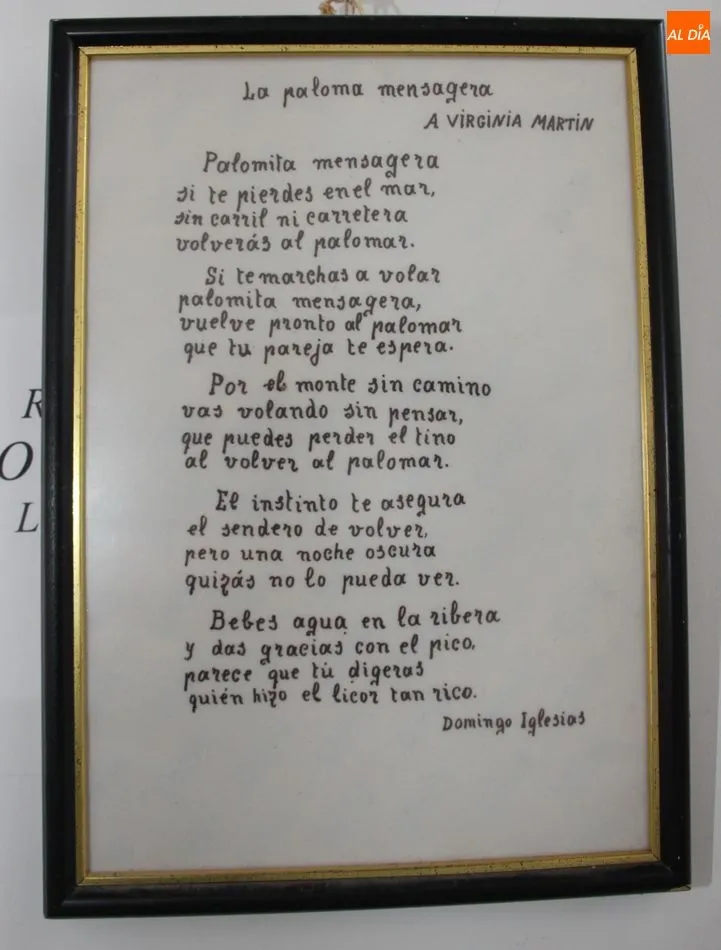 AL DÍA
La paloma mensagera
A VIRGINIA MARTIN
Palomita mensagera
si te pierdes en el mar,
sin carril ni carretera
volverás al palomar.
Si te marchas a volar
palomita mensagera,
vuelve pronto al palomar
que tu pareja te espera.
Por el monte sin camino
vas volando sin pensar,
que puedes perder el tino
al volver al palomar.
El instinto te asegura
el sendero de volver,
pero una noche oscura
quizás no lo pueda ver.
Bebes agua en la ribera
y das gracias con el pico,
parece que tú digeras
quién hizo el licor tan rico.
Domingo Iglesias
R
O
L